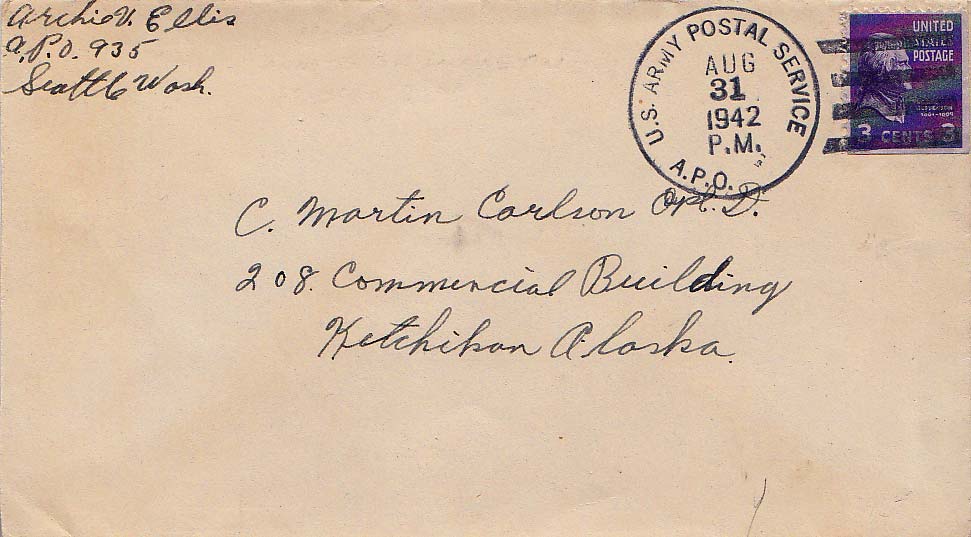 Archie V. Ellis
A.P.O. 935
Seattle Wash.
U.S. ARMY POSTAL SERVICE
AUG
31
1942
P.M.
A.P.O.
UNITED
STATES
POSTAGE
JEFFERSON
1801-1809
3 CENTS 3
C. Martin Carlson Opt. D.
208. Commercial Building
Ketchikan Alaska.